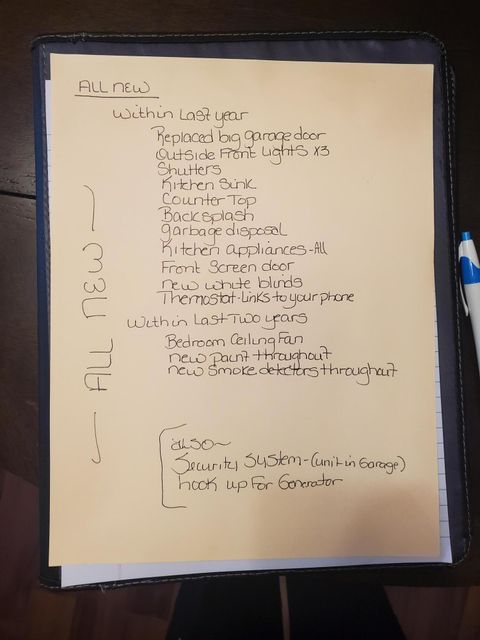 ALL NEW
Within Last year
Replaced big garage door
Outside Front Lights x3
Shutters
Kitchen Sink
Counter Top
Backsplash
Garbage disposal
Kitchen Appliances - All
Front Screen door
new white blinds
Thermostat - Links to your phone
Within Last Two years
Bedroom Ceiling Fan
new paint throughout
new smoke detectors throughout
ALL NEW
also~
Security System - (unit in Garage)
hook up For Generator